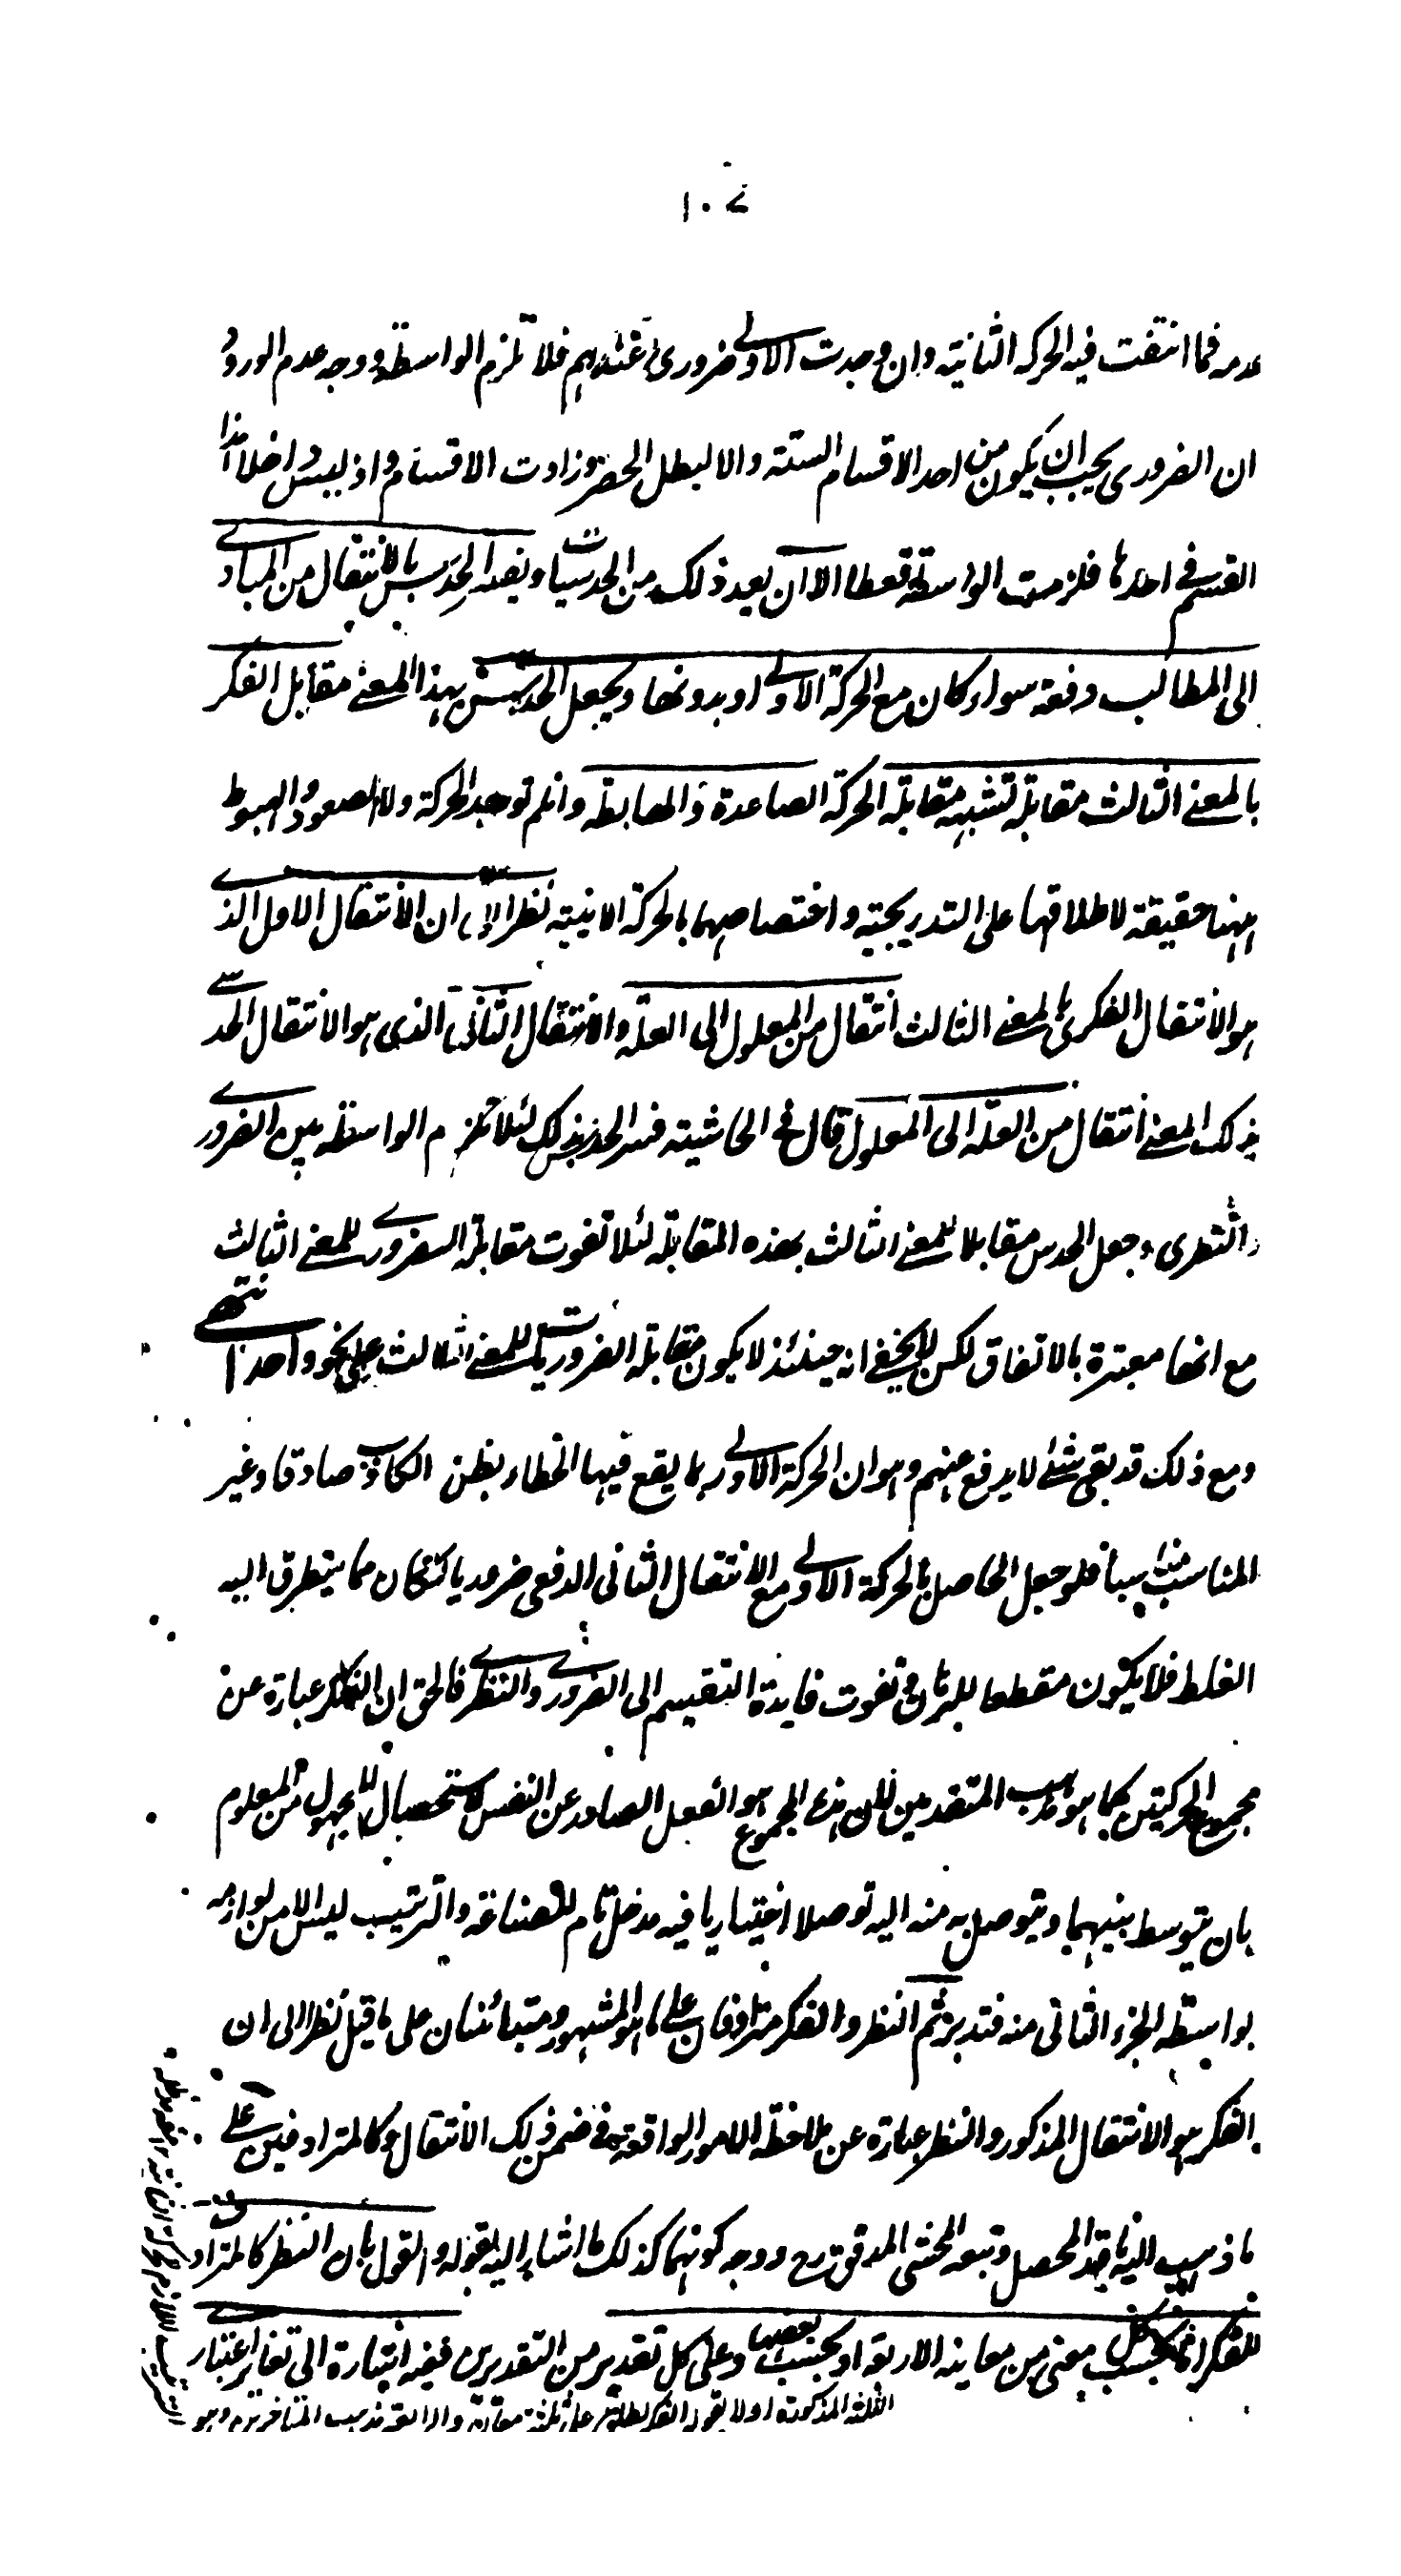 ١٠٧
عدمه فما انتفت فيه الحركة الثانية وان وجدت الاولى ضروري عندهم فلا تلزم الواسطة ووجه عدم الورود
ان الضروري يجب ان يكون من احد الاقسام الستة والا لبطل الحصر وزادت الاقسام واذ ليس داخلا هذا
القسم في احدها فلزمت الواسطة قطعا الا ان يعد ذلك من الحدسيات ويفسر الحدس بالانتقال من المبادي
الى المطالب دفعة سواء كان مع الحركة الاولى او بدونها ويجعل الحدس بهذا المعنى مقابل الفكر
بالمعنى الثالث مقابلة تشبه مقابلة الحركة الصاعدة والهابطة وانلم توجد الحركة ولا الصعود والهبوط
ههنا حقيقة لاطلاقها على التدريجية واختصاصهما بالحركة الاينية نظرا الى ان الانتقال الاول الذي
هو الانتقال الفكري بالمعنى الثالث انتقال من المعلول الى العلة والانتقال الثاني الذي هو الانتقال الحدسي
بذلك المعنى انتقال من العلة الى المعلول قال في الحاشية فسر الحدس بذلك لئلا تلزم الواسطة بين الضروري
والنظري وجعل الحدس مقابلا للمعنى الثالث بهذه المقابلة لئلا تفوت مقابلة الضروري للمعنى الثالث
مع انها معتبرة بالاتفاق لكن لا يخفى انه حينئذ لا يكون مقابلة الضروريات للمعنى الثالث على نحو واحد انتهى
ومع ذلك قد بقي شئ لا يرفع عنهم وهو ان الحركة الاولى ربما يقع فيها الخطاء بظن الكاذب صادقا وغير
المناسب مناسبا فلو جعل الحاصل بالحركة الاولى مع الانتقال الثاني الدفعي ضروريا لكان مما يتطرق اليه
الغلط فلا يكون مقطعا للبرهان وتفوت فايدة التقسيم الى الضروري والنظري فالحق ان الفكر عبارة عن
مجموع الحركتين كما هو مذهب المتقدمين لان هذا المجموع هو الفعل الصادر عن النفس لاستحصال المجهول من المعلوم
بان يتوسط بينهما ويتوصل به منه اليه توصلا اختياريا فيه مدخل تام للصناعة والترتيب ليس الا من لوازمه
بواسطة الجزء الثاني منه فتدبر ثم النظر والفكر مترادفان على ما هو المشهور ومتبائنان على ما قيل نظرا الى ان
الفكر هو الانتقال المذكور والنظر عبارة عن ملاحظة الامور الواقعة في ضمن ذلك الانتقال وكالمترادفين على
ما ذهب اليه ناقد المحصل وتبعه المحشي المدقق رح ووجه كونهما كذلك ما اشار اليه بقوله والقول بان النظر كالمترادف
للفكر انما بحسب كل معنى من معانيه الاربعة او بحسب بعضها وعلى كل تقدير من التقديرين ففيه اشارة الى تغاير اعتباري
الثلثة المذكورة اولا بقوله الفكر يطلق على ثلثة معان والرابعة مذهب المتاخرين وهو
الترتيب اللازم للحركة الثانية